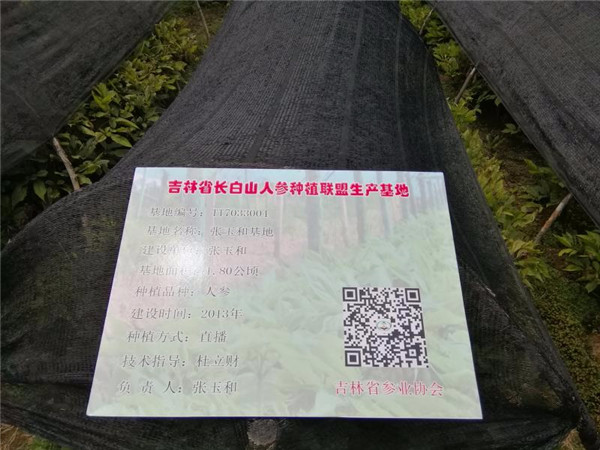 吉林省长白山人参种植联盟生产基地
基地编号：117033001
基地名称：张玉和基地
建设单位：张玉和
基地面积：1.80公顷
种植品种：人参
建设时间：2013年
种植方式：直播
技术指导：杜立财
负 责 人：张玉和
吉林省参业协会